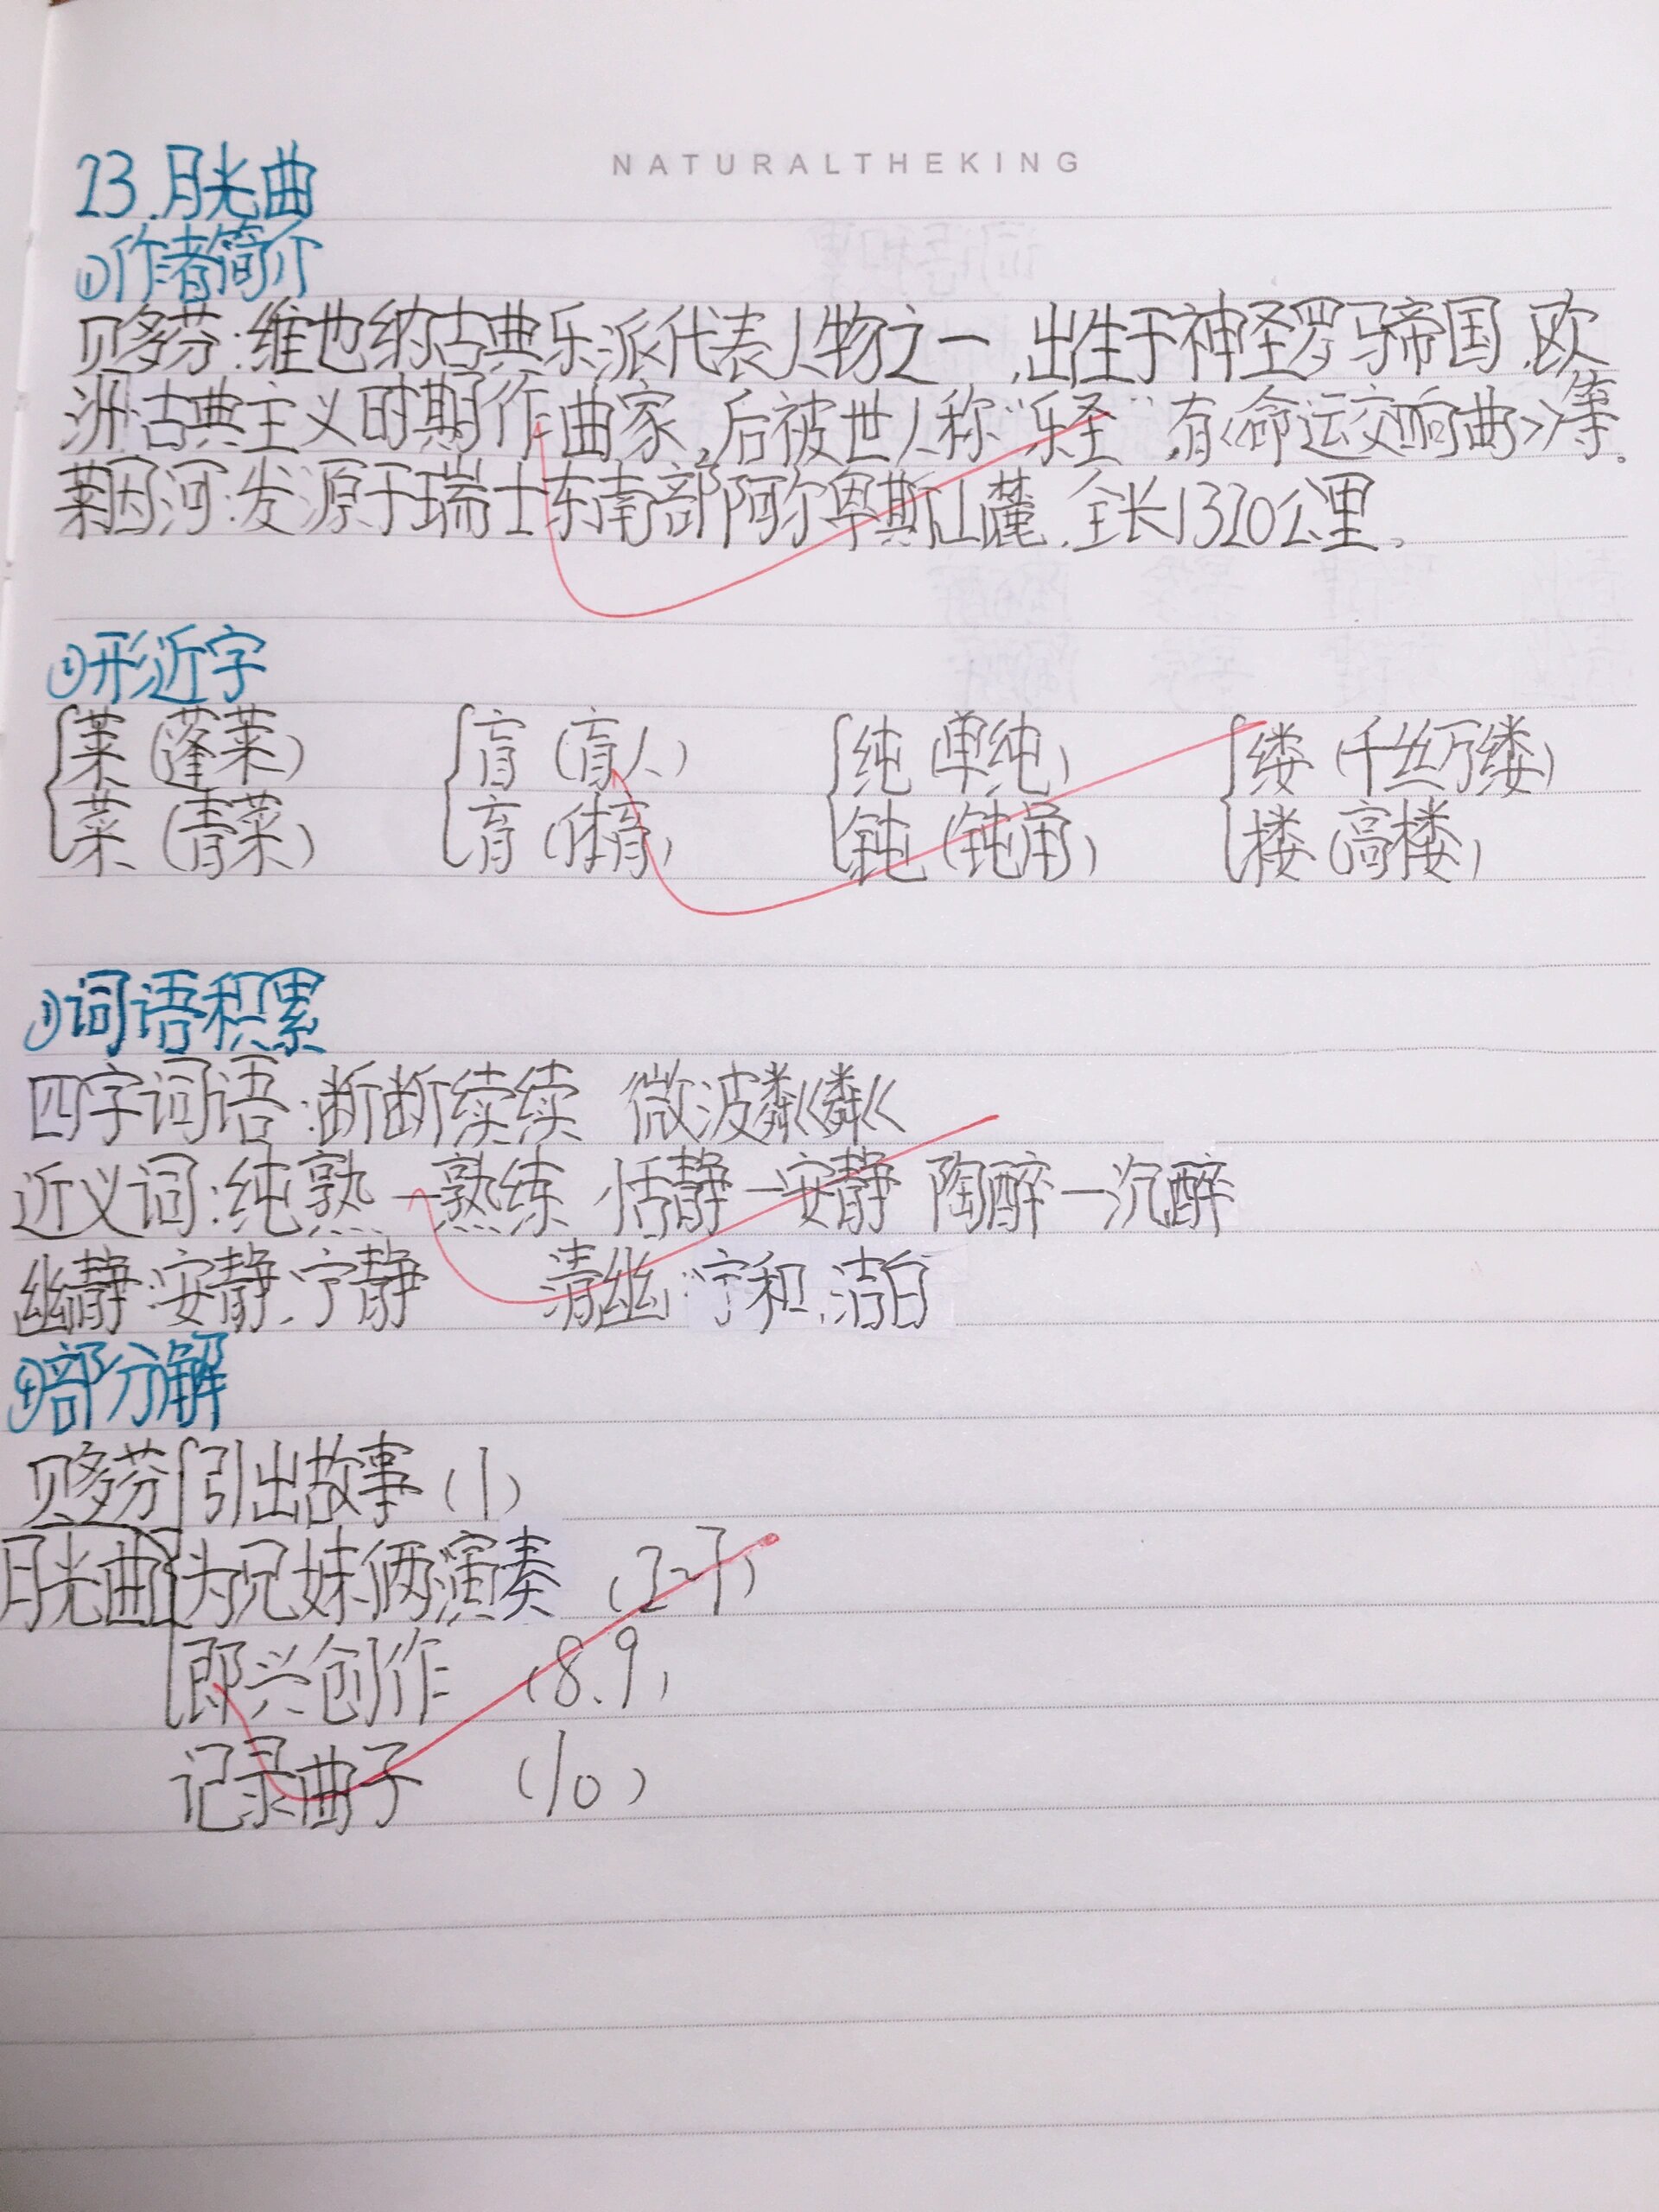 NATURALTHEKING
23.月光曲
①作者简介
贝多芬:维也纳古典乐派代表人物之一,出生于神圣罗马帝国.欧
洲古典主义时期作曲家,后被世人称“乐圣”,有<命运交响曲>等。
莱因河:发源于瑞士东南部阿尔卑斯山麓.全长1320公里.
②形近字
莱(蓬莱) 盲(盲人) 纯(单纯) 缕(千丝万缕)
菜(青菜) 育(体育) 钝(钝角) 楼(高楼)
③词语积累
四字词语:断断续续 微波粼粼
近义词:纯熟—熟练 恬静—安静 陶醉—沉醉
幽静:安静、宁静 清幽:宁和、洁白
④部分解
贝多芬 引出故事(1)
月光曲 为兄妹俩演奏 (2~7)
即兴创作 (8.9)
记录曲子 (10)